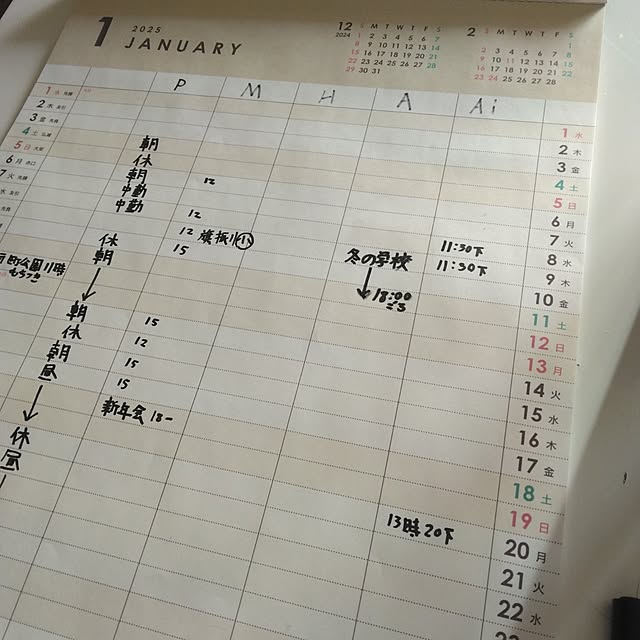 1 2025 JANUARY
12 2024
S M T W T F S
1 2 3 4 5 6 7
8 9 10 11 12 13 14
15 16 17 18 19 20 21
22 23 24 25 26 27 28
29 30 31
2
S M T W T F S
1
2 3 4 5 6 7 8
9 10 11 12 13 14 15
16 17 18 19 20 21 22
23 24 25 26 27 28
P M H A Ai
1 水
2 木
3 金
4 土
5 日
6 月
7 火
朝
休
朝
中勤
中勤
休
朝
朝
休
朝
昼
休
昼
12
12
12 旗振り
15
15
12
15
15
新年会 18-
町公園11時
もちつき
冬の学校
18:00
ごろ
11:30下
11:30下
13時20下
1 水
2 木
3 金
4 土
5 日
6 月
7 火
8 水
9 木
10 金
11 土
12 日
13 月
14 火
15 水
16 木
17 金
18 土
19 日
20 月
21 火
22 水